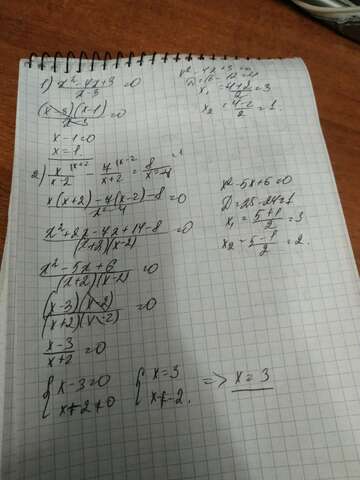 1) x² - 4x + 3 / x - 3 = 0
x² - 4x + 3 = 0
D = 16 - 12 = 4
x₁ = 4+2 / 2 = 3
x₂ = 4-2 / 2 = 1.
(x-3)(x-1) / x-3 = 0
x - 1 = 0
x = 1.
2) x / x-2 - 4 / x+2 = 8 / x²-4
x(x+2) - 4(x-2) - 8 / x²-4 = 0
x² + 2x - 4x + 14 - 8 / (x+2)(x-2) = 0
x² - 5x + 6 / (x+2)(x-2) = 0
x² - 5x + 6 = 0
D = 25 - 24 = 1
x₁ = 5+1 / 2 = 3
x₂ = 5-1 / 2 = 2.
(x-3)(x-2) / (x+2)(x-2) = 0
x-3 / x+2 = 0
{ x-3=0
x+2≠0
{ x=3
x≠-2.
=> x = 3